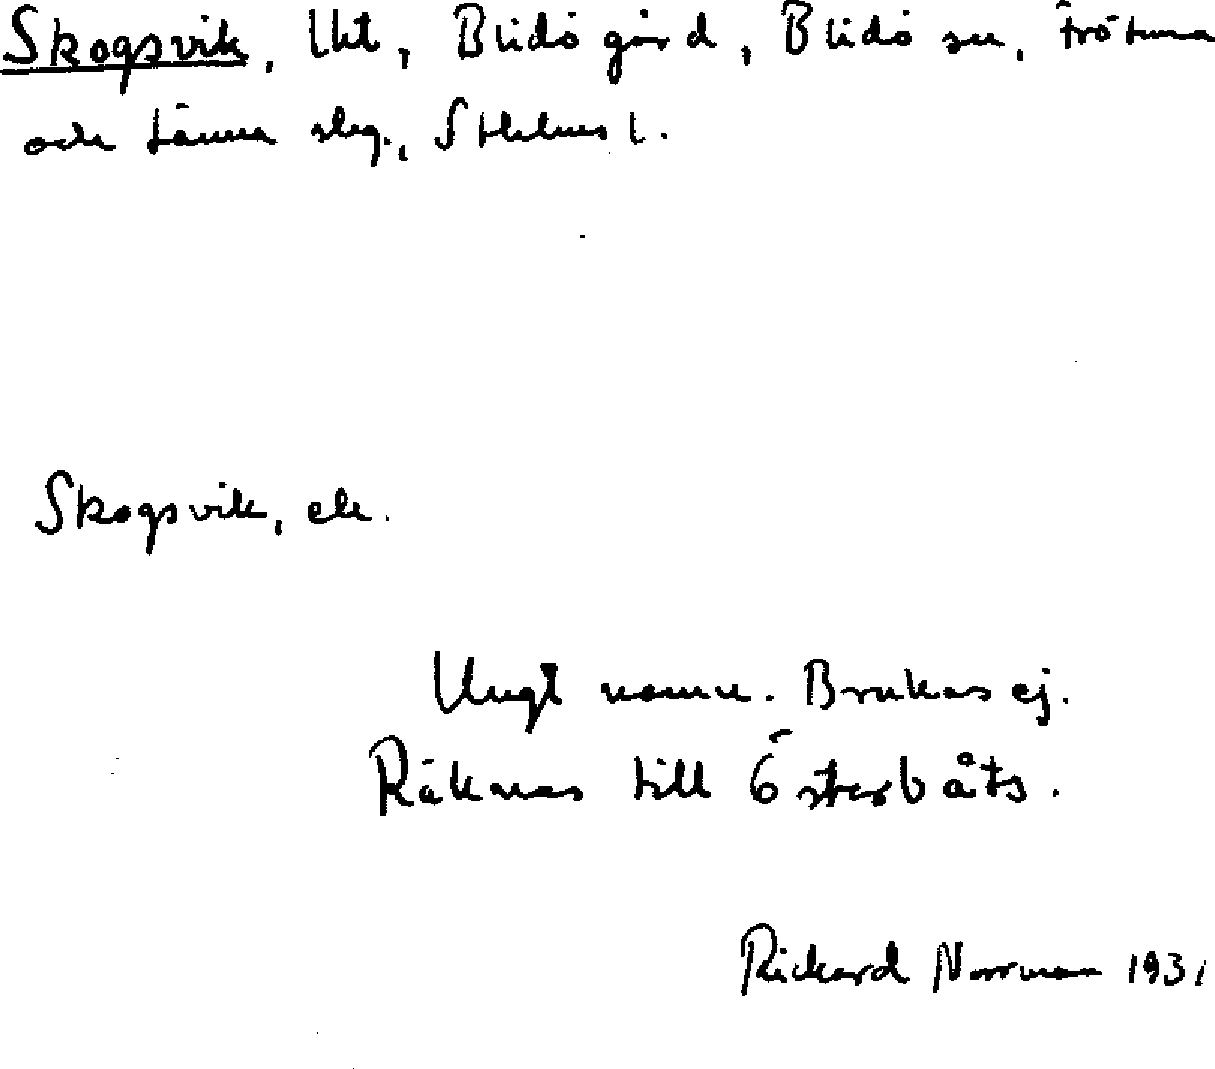 Skogsvik, Uht, Blidö gård, Blidö sn, Frötuna
och Länna slg., Sthlms l.
Skogsvik, ek.
Ungt namn. Brukas ej.
Räknas till Österbåts.
Rickard Norrman 1931